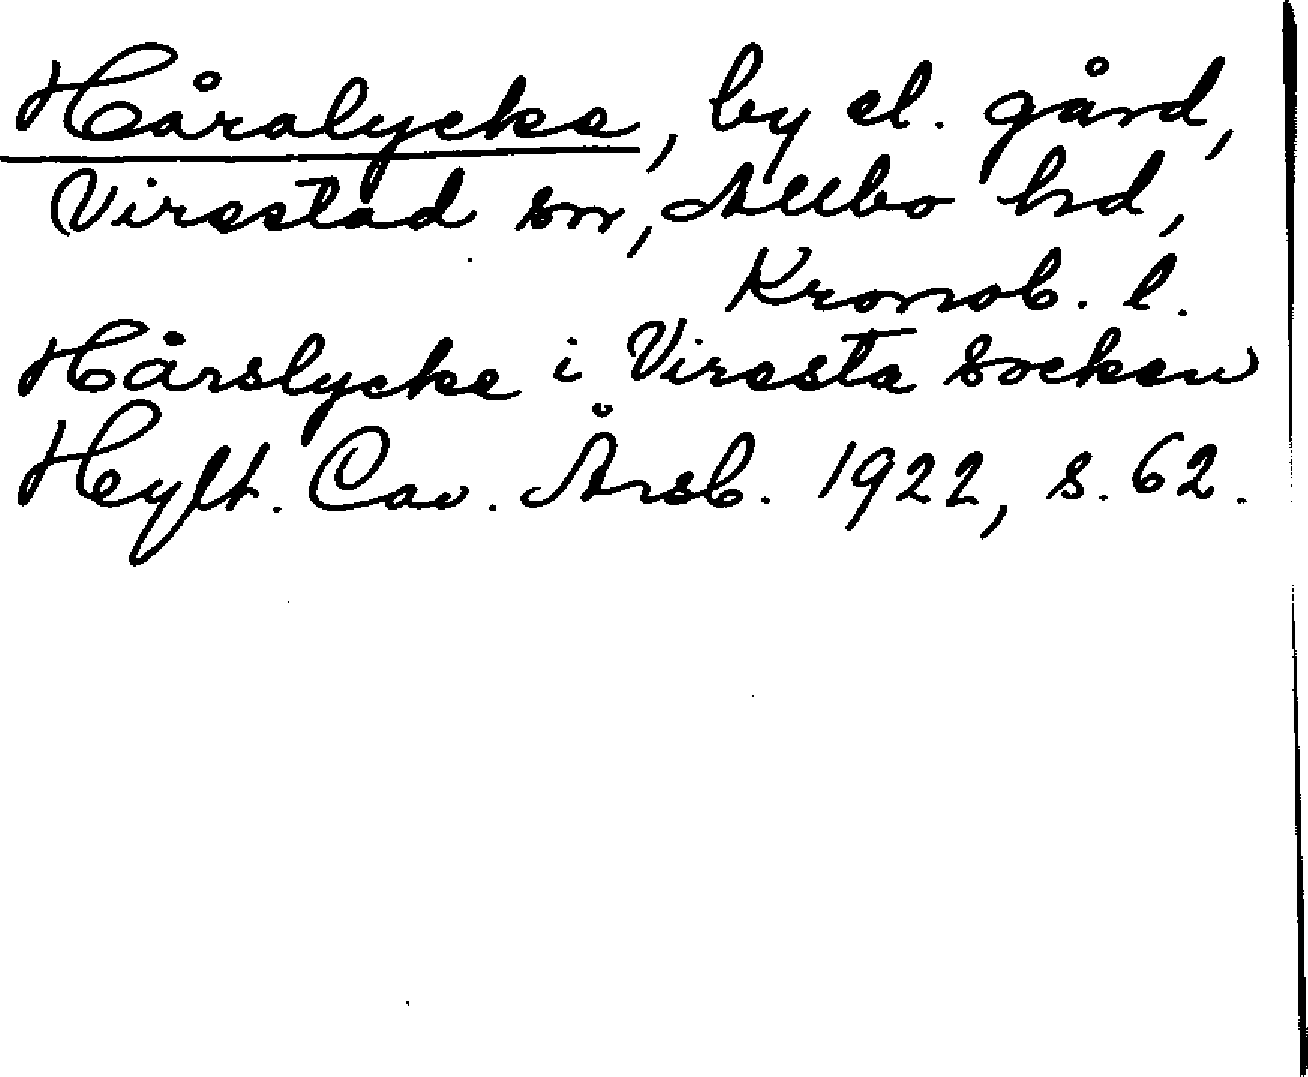 Håralycke, by el. gård,
Virestad sn, Allbo hd,
Kronob. l.
Hårslycke i Viresta socken
Hylt. Cav. Årsb. 1922, s. 62.